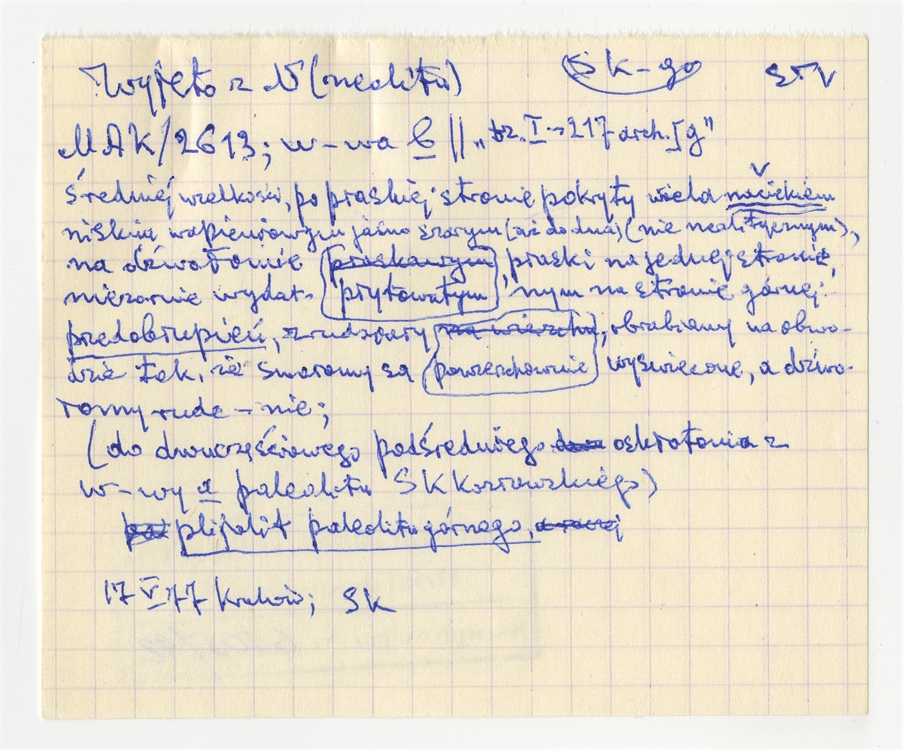 Wyjęto z N (neolitu) SK-go STV
MAK/2613; w-wa b || „tz. I → 217 arch. Ig”
średniej wielkości, po płaskiej stronie pokryty wielu naciekiem
niskim wapieniowym jasno szarym (aż do dna) (nie neolitycznym),
na dźwałomie płaskawym płaski na jednej stronie,
nieznacznie wydat- płytowatym nym na stronie górnej:
przedobłupień, z rudy szary na wierzchu, obrabiany na obwo-
dzie tak, że są powierzchownie wyświecone, a
rude – nie;
(do dwuczęściowego pośredniego z
w-wy a paleolitu SKKozłowskiego)
paleolitu górnego,
17 V 77 Kraków; SK